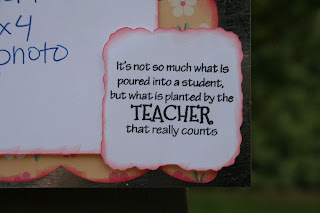 x4
photo
It's not so much what is
poured into a student,
but what is planted by the
TEACHER
that really counts